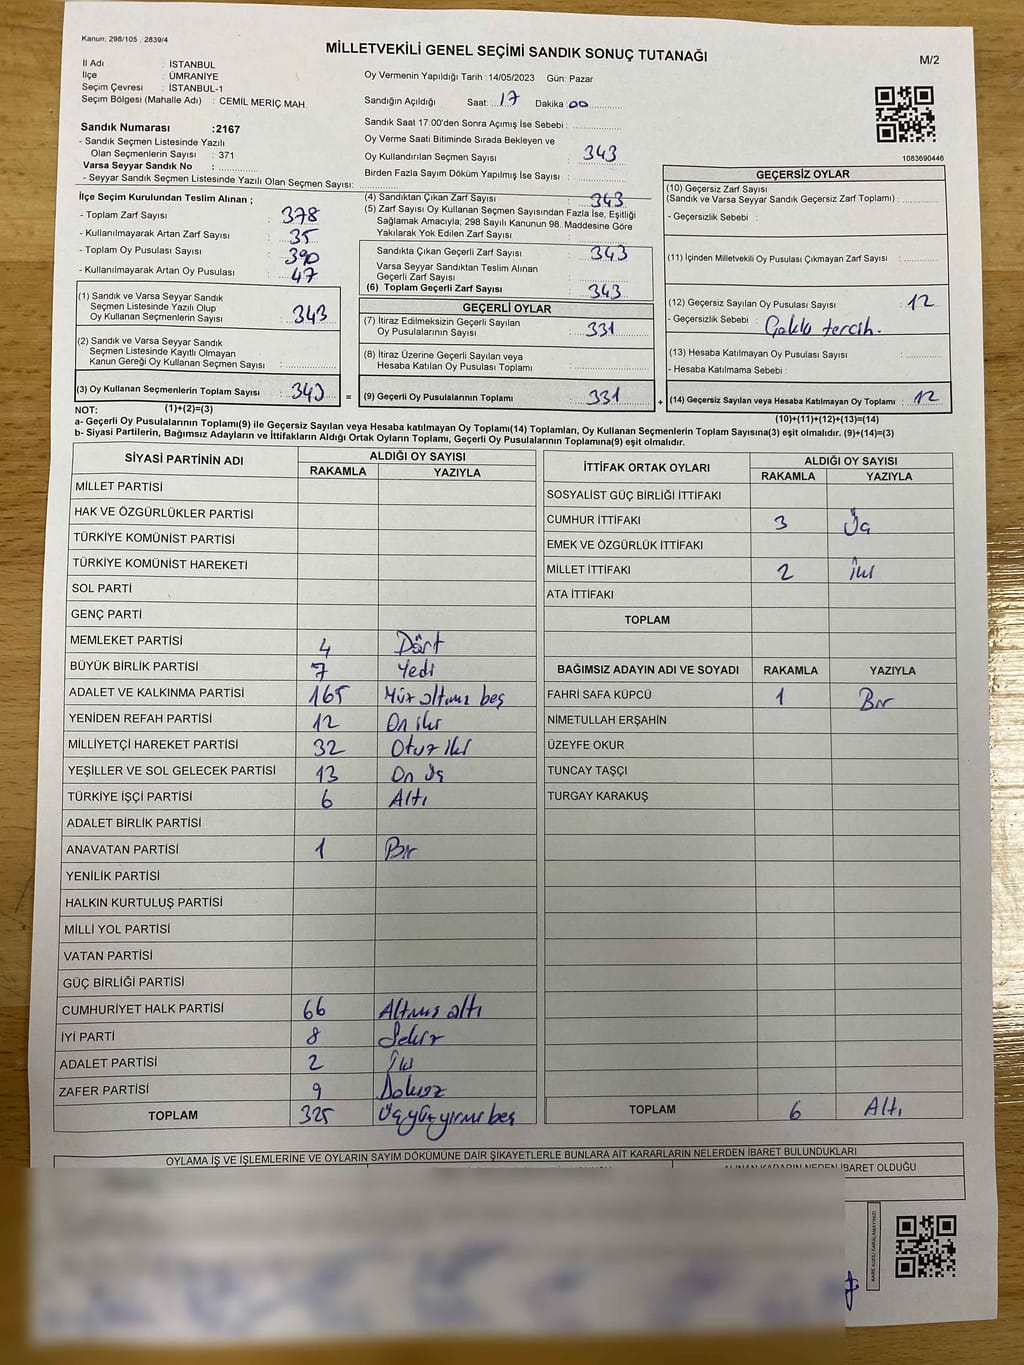 Kanun: 298/105 , 2839/4
MİLLETVEKİLİ GENEL SEÇİMİ SANDIK SONUÇ TUTANAĞI
M/2
İl Adı : İSTANBUL
İlçe : ÜMRANİYE
Seçim Çevresi : İSTANBUL-1
Seçim Bölgesi (Mahalle Adı) : CEMİL MERİÇ MAH.
Oy Vermenin Yapıldığı Tarih :14/05/2023 Gün: Pazar
Sandığın Açıldığı Saat: 17 Dakika: 00
Sandık Saat 17:00'den Sonra Açımış İse Sebebi :
Sandık Numarası :2167
- Sandık Seçmen Listesinde Yazılı
Olan Seçmenlerin Sayısı : 371
Varsa Seyyar Sandık No :
- Seyyar Sandık Seçmen Listesinde Yazılı Olan Seçmen Sayısı:
Oy Verme Saati Bitiminde Sırada Bekleyen ve
Oy Kullandırılan Seçmen Sayısı : 343
Birden Fazla Sayım Döküm Yapılmış İse Sayısı :
1083690446
İlçe Seçim Kurulundan Teslim Alınan ;
- Toplam Zarf Sayısı : 378
- Kullanılmayarak Artan Zarf Sayısı : 35
- Toplam Oy Pusulası Sayısı : 390
- Kullanılmayarak Artan Oy Pusulası : 47
(1) Sandık ve Varsa Seyyar Sandık
Seçmen Listesinde Yazılı Olup
Oy Kullanan Seçmenlerin Sayısı : 343
(2) Sandık ve Varsa Seyyar Sandık
Seçmen Listesinde Kayıtlı Olmayan
Kanun Gereği Oy Kullanan Seçmen Sayısı :
(3) Oy Kullanan Seçmenlerin Toplam Sayısı : 343 =
(4) Sandıktan Çıkan Zarf Sayısı : 343
(5) Zarf Sayısı Oy Kullanan Seçmen Sayısından Fazla İse, Eşitliği
Sağlamak Amacıyla; 298 Sayılı Kanunun 98. Maddesine Göre
Yakılarak Yok Edilen Zarf Sayısı :
Sandıkta Çıkan Geçerli Zarf Sayısı : 343
Varsa Seyyar Sandıktan Teslim Alınan
Geçerli Zarf Sayısı :
(6) Toplam Geçerli Zarf Sayısı : 343
GEÇERLİ OYLAR
(7) İtiraz Edilmeksizin Geçerli Sayılan
Oy Pusulalarının Sayısı : 331
(8) İtiraz Üzerine Geçerli Sayılan veya
Hesaba Katılan Oy Pusulası Toplamı :
(9) Geçerli Oy Pusulalarının Toplamı : 331 +
GEÇERSİZ OYLAR
(10) Geçersiz Zarf Sayısı
(Sandık ve Varsa Seyyar Sandık Geçersiz Zarf Toplamı) :
- Geçersizlik Sebebi :
(11) İçinden Milletvekili Oy Pusulası Çıkmayan Zarf Sayısı :
(12) Geçersiz Sayılan Oy Pusulası Sayısı : 12
- Geçersizlik Sebebi : Çoklu tercih.
(13) Hesaba Katılmayan Oy Pusulası Sayısı :
- Hesaba Katılmama Sebebi :
(14) Geçersiz Sayılan veya Hesaba Katılmayan Oy Toplamı : 12
NOT: (1)+(2)=(3)
(10)+(11)+(12)+(13)=(14)
a- Geçerli Oy Pusulasının Toplamı(9) ile Geçersiz Sayılan veya Hesaba katılmayan Oy Toplamı(14) Toplamları, Oy Kullanan Seçmenlerin Toplam Sayısına(3) eşit olmalıdır. (9)+(14)=(3)
b- Siyasi Partilerin, Bağımsız Adayların ve İttifakların Aldığı Ortak Oyların Toplamı, Geçerli Oy Pusulalarının Toplamına(9) eşit olmalıdır.
SİYASİ PARTİNİN ADI ALDIĞI OY SAYISI
RAKAMLA YAZIYLA
MİLLET PARTİSİ
HAK VE ÖZGÜRLÜKLER PARTİSİ
TÜRKİYE KOMÜNİST PARTİSİ
TÜRKİYE KOMÜNİST HAREKETİ
SOL PARTİ
GENÇ PARTİ
MEMLEKET PARTİSİ 4 Dört
BÜYÜK BİRLİK PARTİSİ 7 Yedi
ADALET VE KALKINMA PARTİSİ 165 Yüz altmış beş
YENİDEN REFAH PARTİSİ 12 On iki
MİLLİYETÇİ HAREKET PARTİSİ 32 Otuz iki
YEŞİLLER VE SOL GELECEK PARTİSİ 13 On üç
TÜRKİYE İŞÇİ PARTİSİ 6 Altı
ADALET BİRLİK PARTİSİ
ANAVATAN PARTİSİ 1 Bir
YENİLİK PARTİSİ
HALKIN KURTULUŞ PARTİSİ
MİLLİ YOL PARTİSİ
VATAN PARTİSİ
GÜÇ BİRLİĞİ PARTİSİ
CUMHURİYET HALK PARTİSİ 66 Altmış altı
İYİ PARTİ 8 Sekiz
ADALET PARTİSİ 2 İki
ZAFER PARTİSİ 9 Dokuz
TOPLAM 325 Üçyüz yirmi beş
İTTİFAK ORTAK OYLARI ALDIĞI OY SAYISI
RAKAMLA YAZIYLA
SOSYALİST GÜÇ BİRLİĞİ İTTİFAKI
CUMHUR İTTİFAKI 3 Üç
EMEK VE ÖZGÜRLÜK İTTİFAKI
MİLLET İTTİFAKI 2 İki
ATA İTTİFAKI
TOPLAM
BAĞIMSIZ ADAYIN ADI VE SOYADI RAKAMLA YAZIYLA
FAHRİ SAFA KÜPCÜ 1 Bir
NİMETULLAH ERŞAHİN
ÜZEYFE OKUR
TUNCAY TAŞÇI
TURGAY KARAKUŞ
TOPLAM 6 Altı
OYLAMA İŞ VE İŞLEMLERİNE VE OYLARIN SAYIM DÖKÜMÜNE DAİR ŞİKAYETLERLE BUNLARA AİT KARARLARIN NELERDEN İBARET BULUNDUKLARI
ALINAN KARARIN NEDEN İBARET OLDUĞU
KARE KODU KARALAMAYINIZ!